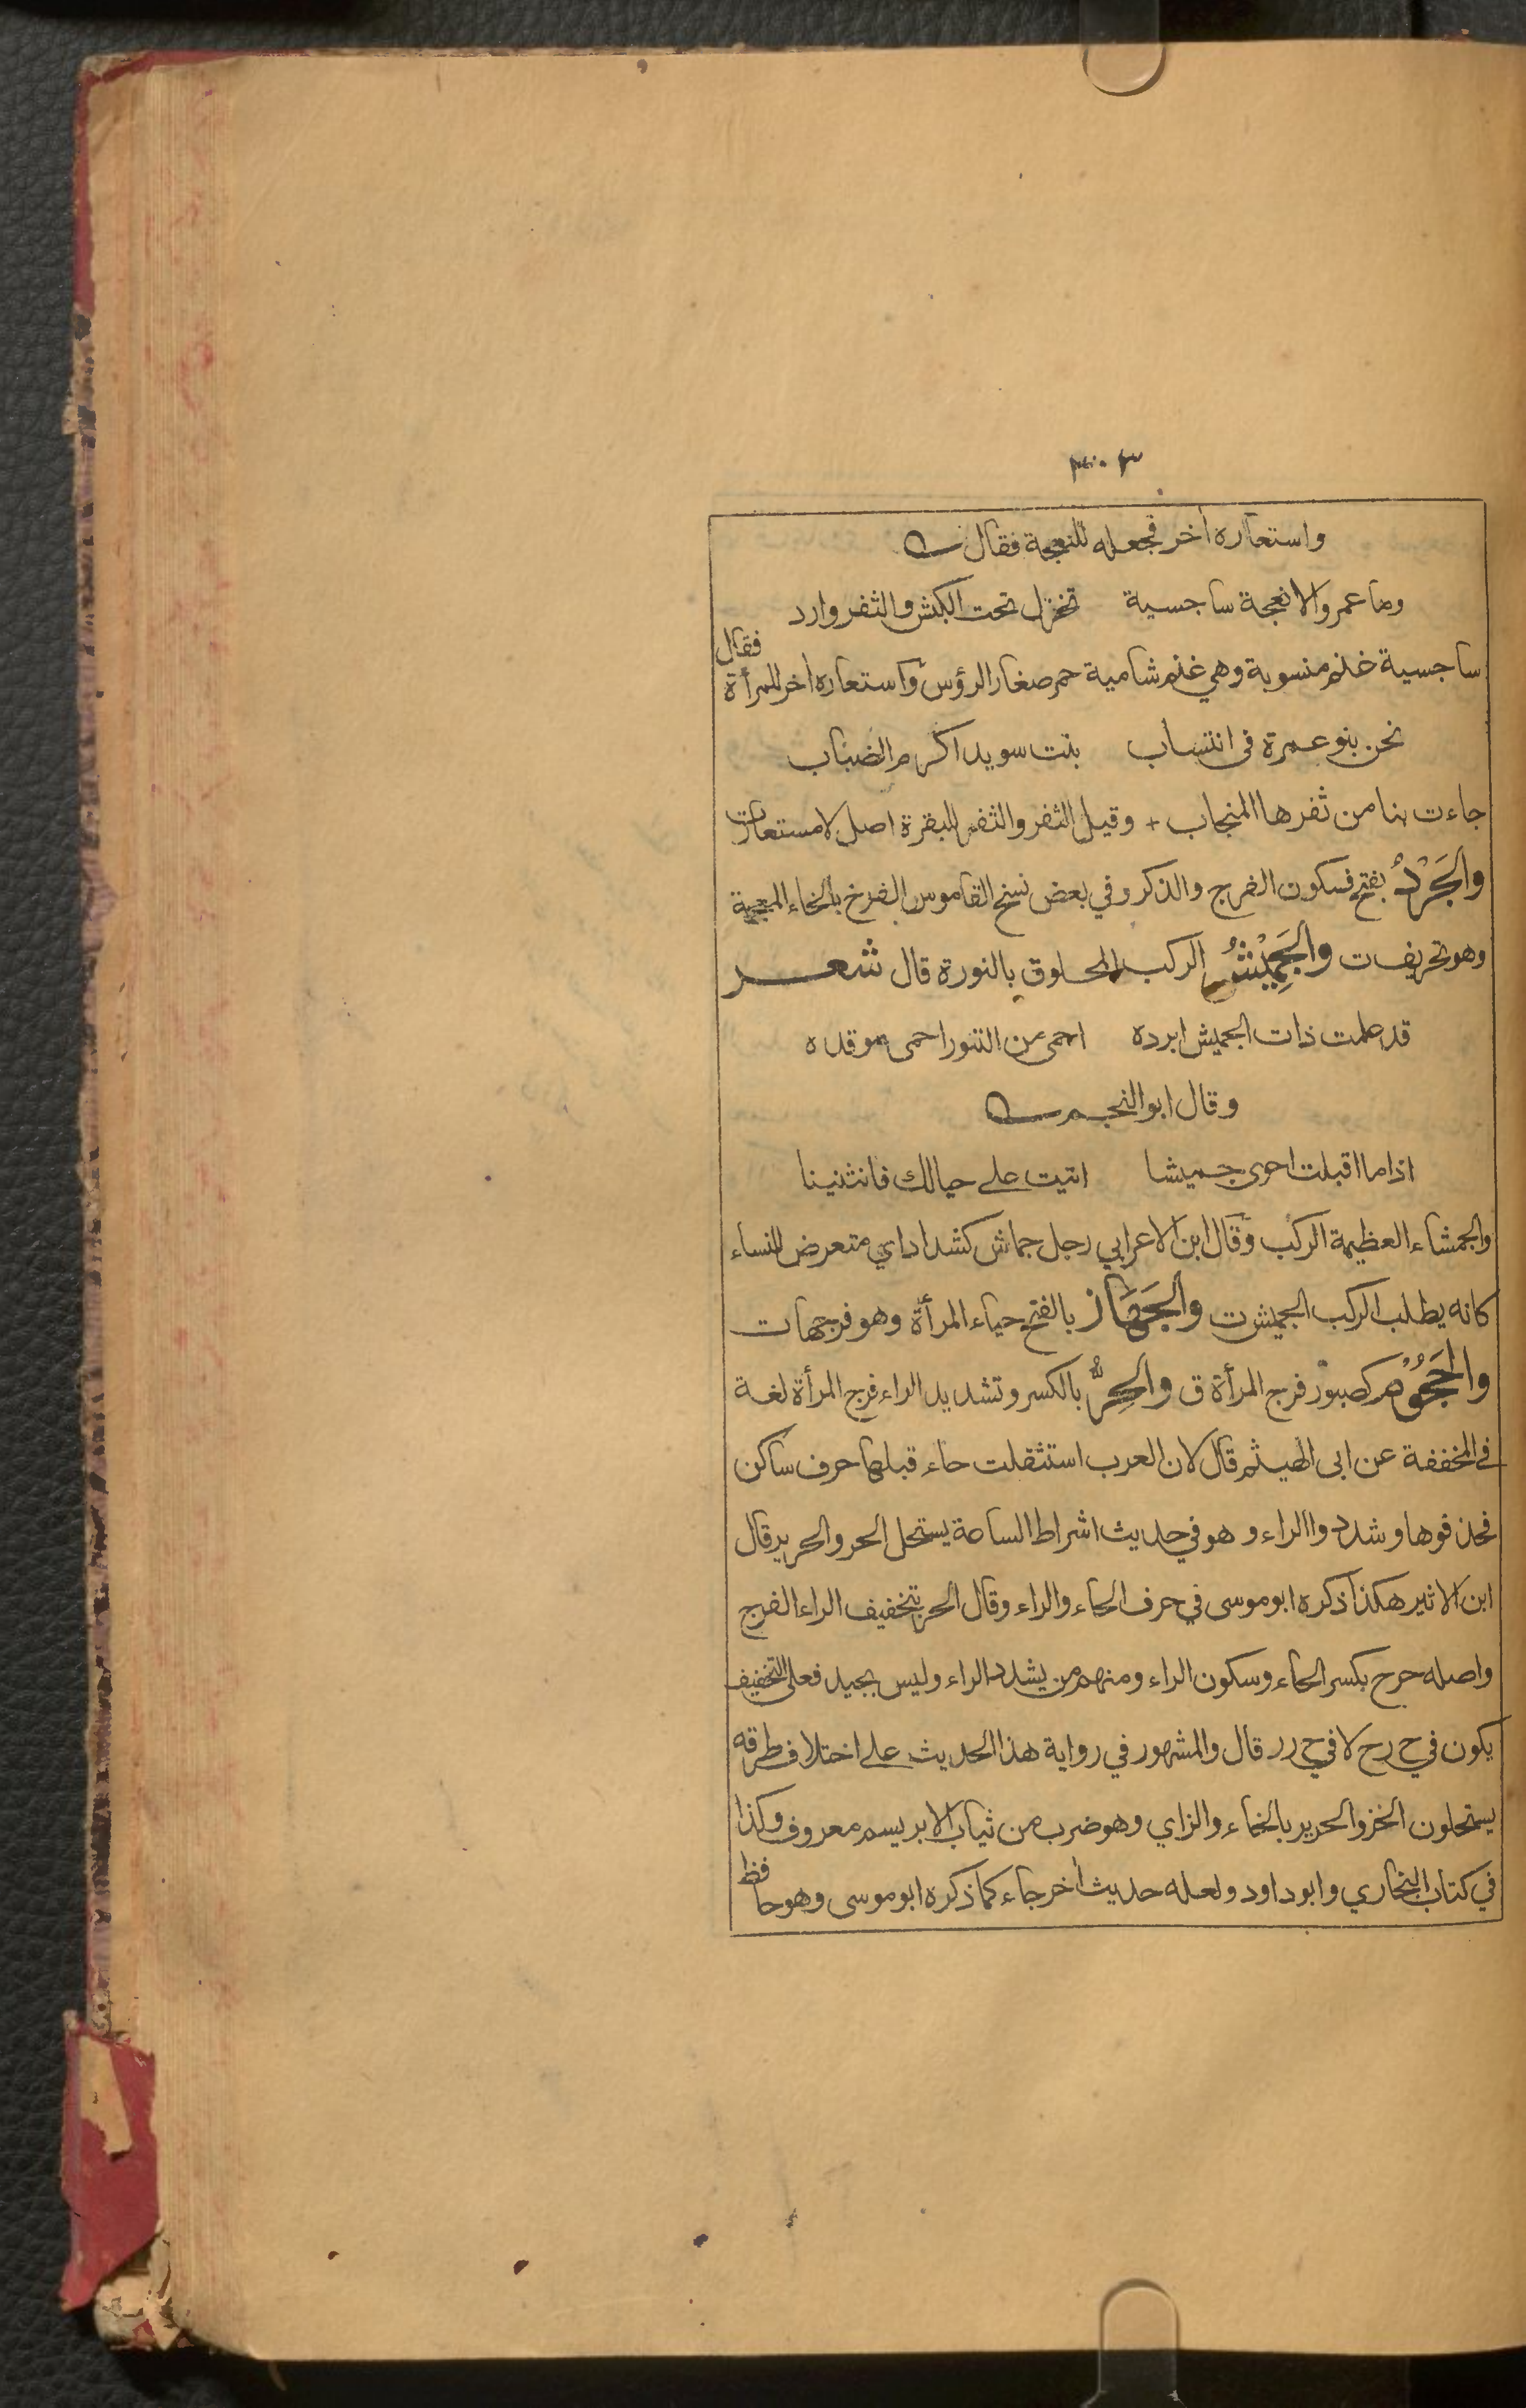 واستعاره اخر فجعله للنعجة فقال
وما عمرو الا نعجة ساجسية تخزل تحت الكبش والثفر وارد
ساجسية غنم منسوبة وهي غنم شامية حمر صغار الرؤس واستعاره اخر للمرأة فقال
نحن بنو عمرة في انتساب بنت سويد اكرم الضباب
جاءت بنا من ثفرها المنجاب + وقيل الثفر والثفر للبقرة اصل لا مستعار ت
والجَرْدُ بفتح فسكون الفرج والذكر وفي بعض نسخ القاموس الفرخ بالخاء المعجمة
وهو تحريف ت والجَمِيْشُ الركب المحلوق بالنورة قال شعر
قد علمت ذات الجميش ابرده احمى من التنور احمى موقده
وقال ابو النجم
اذا ما اقبلت احوى جميشا اتيت على حيالك فانثنينا
والجمشاء العظيمة الركب وقال ابن الاعرابي رجل جماش كشداد اي متعرض للنساء
كانه يطلب الركب الجميش ت والجَهَاز بالفتح حياء المرأة وهو فرجها ت
والجَحُوْم كصبور فرج المرأة ق والحِرُّ بالكسر وتشديد الراء فرج المرأة لغة
في المخففة عن ابى الهيثم قال لان العرب استثقلت حاء قبلها حرف ساكن
فحذفوها وشددوا الراء وهو في حديث اشراط الساعة يستحل الحر والحرير قال
ابن الاثير هكذا ذكره ابو موسى في حرف الحاء والراء وقال الحر بتخفيف الراء الفرج
واصله حرح بكسر الحاء وسكون الراء ومنهم من يشدد الراء وليس بجيد فعلى التخفيف
يكون في ح ر ح لا في ح ر ر قال والمشهور في رواية هذا الحديث على اختلاف طرقه
يستحلون الخز والحرير بالخاء والزاي وهو ضرب من ثياب الابريسم معروف وكذا
في كتاب البخاري وابو داود ولعله حديث اخر جاء كما ذكره ابو موسى وهو حافظ